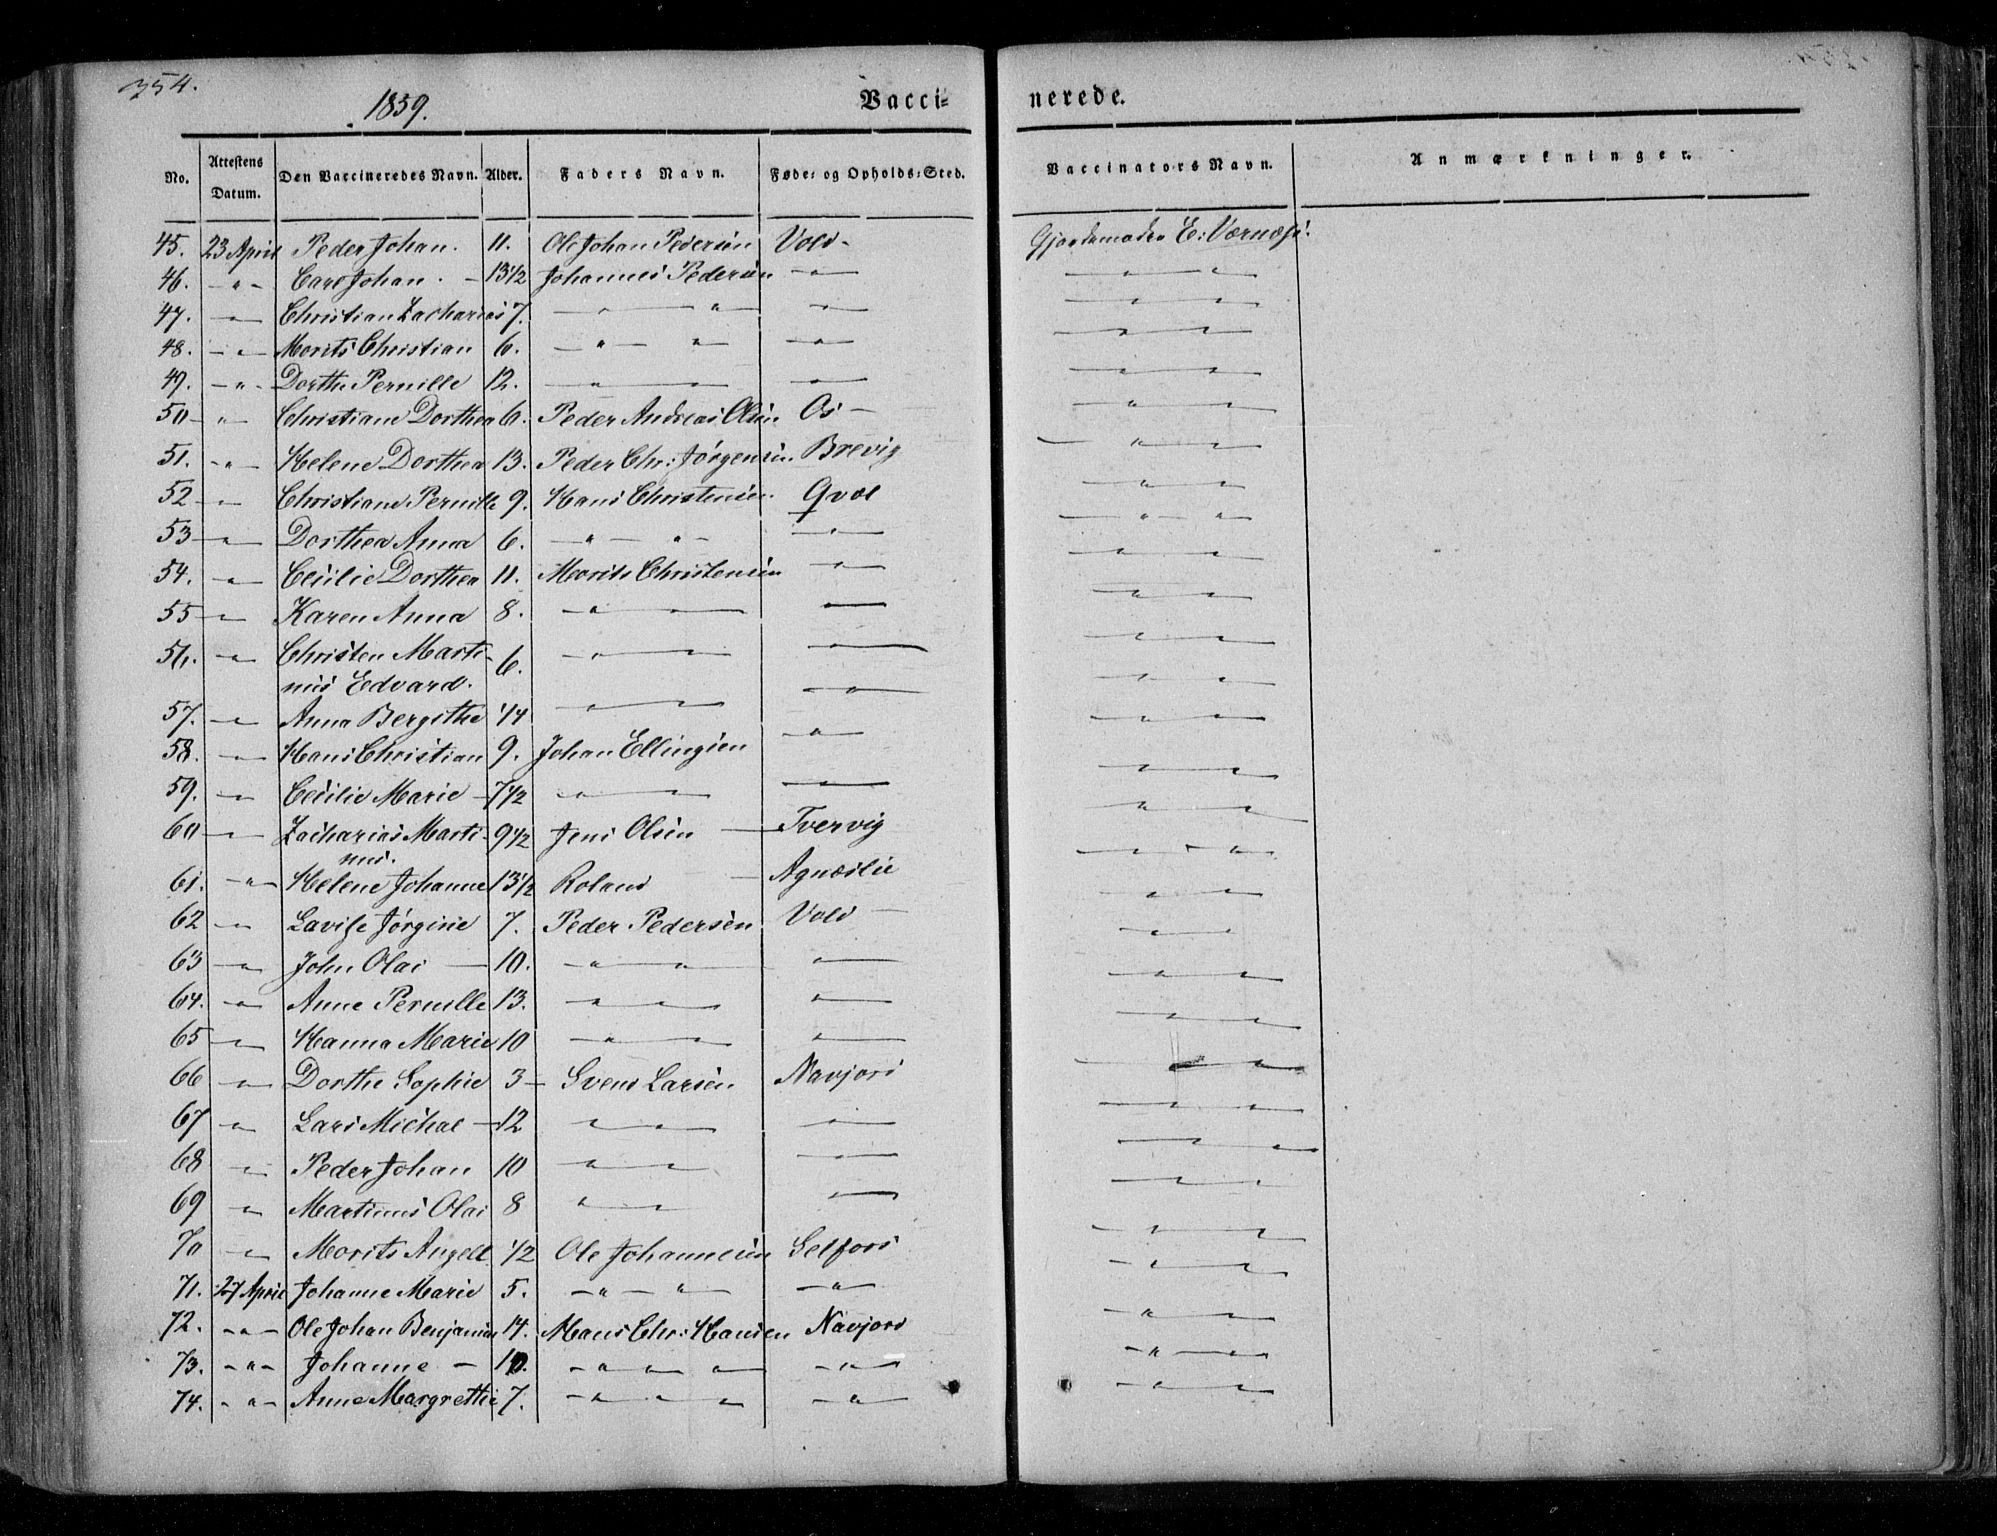 354.
1859.
Vacci= nerede.
No. Attestens Datum. Den Vaccineredes Navn. Alder. Faders Navn. Føde= og Opholds=Sted. Vaccinators Navn. Anmærkninger.
45. 23 April Peder Johan. 11. Ole Johan Pedersen Vold - Gjordemoder E: Værnæs:
46. - " - Carl Johan. - 13 1/2 Johannes Pedersen - " - - " - " -
47. - " - Christian Zacharias 7. - " - " - - " - - " - " -
48. - " - Morits Christian 6. - " - " - - " - - " - " -
49. - " - Dorthe Pernille 12. - " - " - - " - - " - " -
50 - " - Christiane Dorthea 6. Peder Andreas Olsen Os - - " - " -
51. - " - Helene Dorthea 13. Peder Chr: Jørgensen. Brevig - " - " -
52 - " - Christiane Pernille 9. Hans Christensen. Qval - " - " -
53 - " - Dorthea Anna 6. - " - " - - " - - " - " -
54. - " - Cecilie Dorthea 11. Morits Christensen - " - - " - " -
55 - " - Karen Anna 8. - " - " - - " - - " - " -
56. - " - Christen Marti- 6. - " - " - - " - - " - " -
nus Edvard.
57. - " - Anna Bergithe 1/4 - " - " - - " - - " - " -
58. - " - Hans Christian 9. Johan Ellingsen - " - - " - " -
59. - " - Cecilie Marie - 7 1/2 - " - " - - " - - " - " -
60 - " - Zacharias Marti- 9 1/2 Jens Olsen - Tvervig - " - " -
nus.
61. - " - Helene Johanne 13 1/2 Roland - Agnæslie - " - " -
62 - " - Lavise Jørgine 7. Peder Pedersen Vold - - " - " -
63 - " - John Olai - 10. - " - " - - " - - " - " -
64. - " - Anne Pernille 13. - " - " - - " - - " - " -
65 - " - Hanna Marie 10 - " - " - - " - - " - " -
66 - " - Dorthe Sophie 3 - Svend Larsen Navjord - " - " -
67 - " - Lars Michal - 12 - " - " - - " - - " - " -
68 - " - Peder Johan 10 - " - " - - " - - " - " -
69 - " - Martinus Olai 8 - " - " - - " - - " - " -
70 - " - Morits Angell 1/2 Ole Johannesen Selfors - " - " -
71. 27 April Johanne Marie 5. - " - " - - " - - " - " -
72. - " - Ole Johan Benjamin 14. Hans Chr: Hansen Navjord - " - " -
73. - " - Johanne - 10. - " - " - " - - " - - " - " -
74. - " - Anne Margrethe 7. - " - " - " - - " - - " - " -